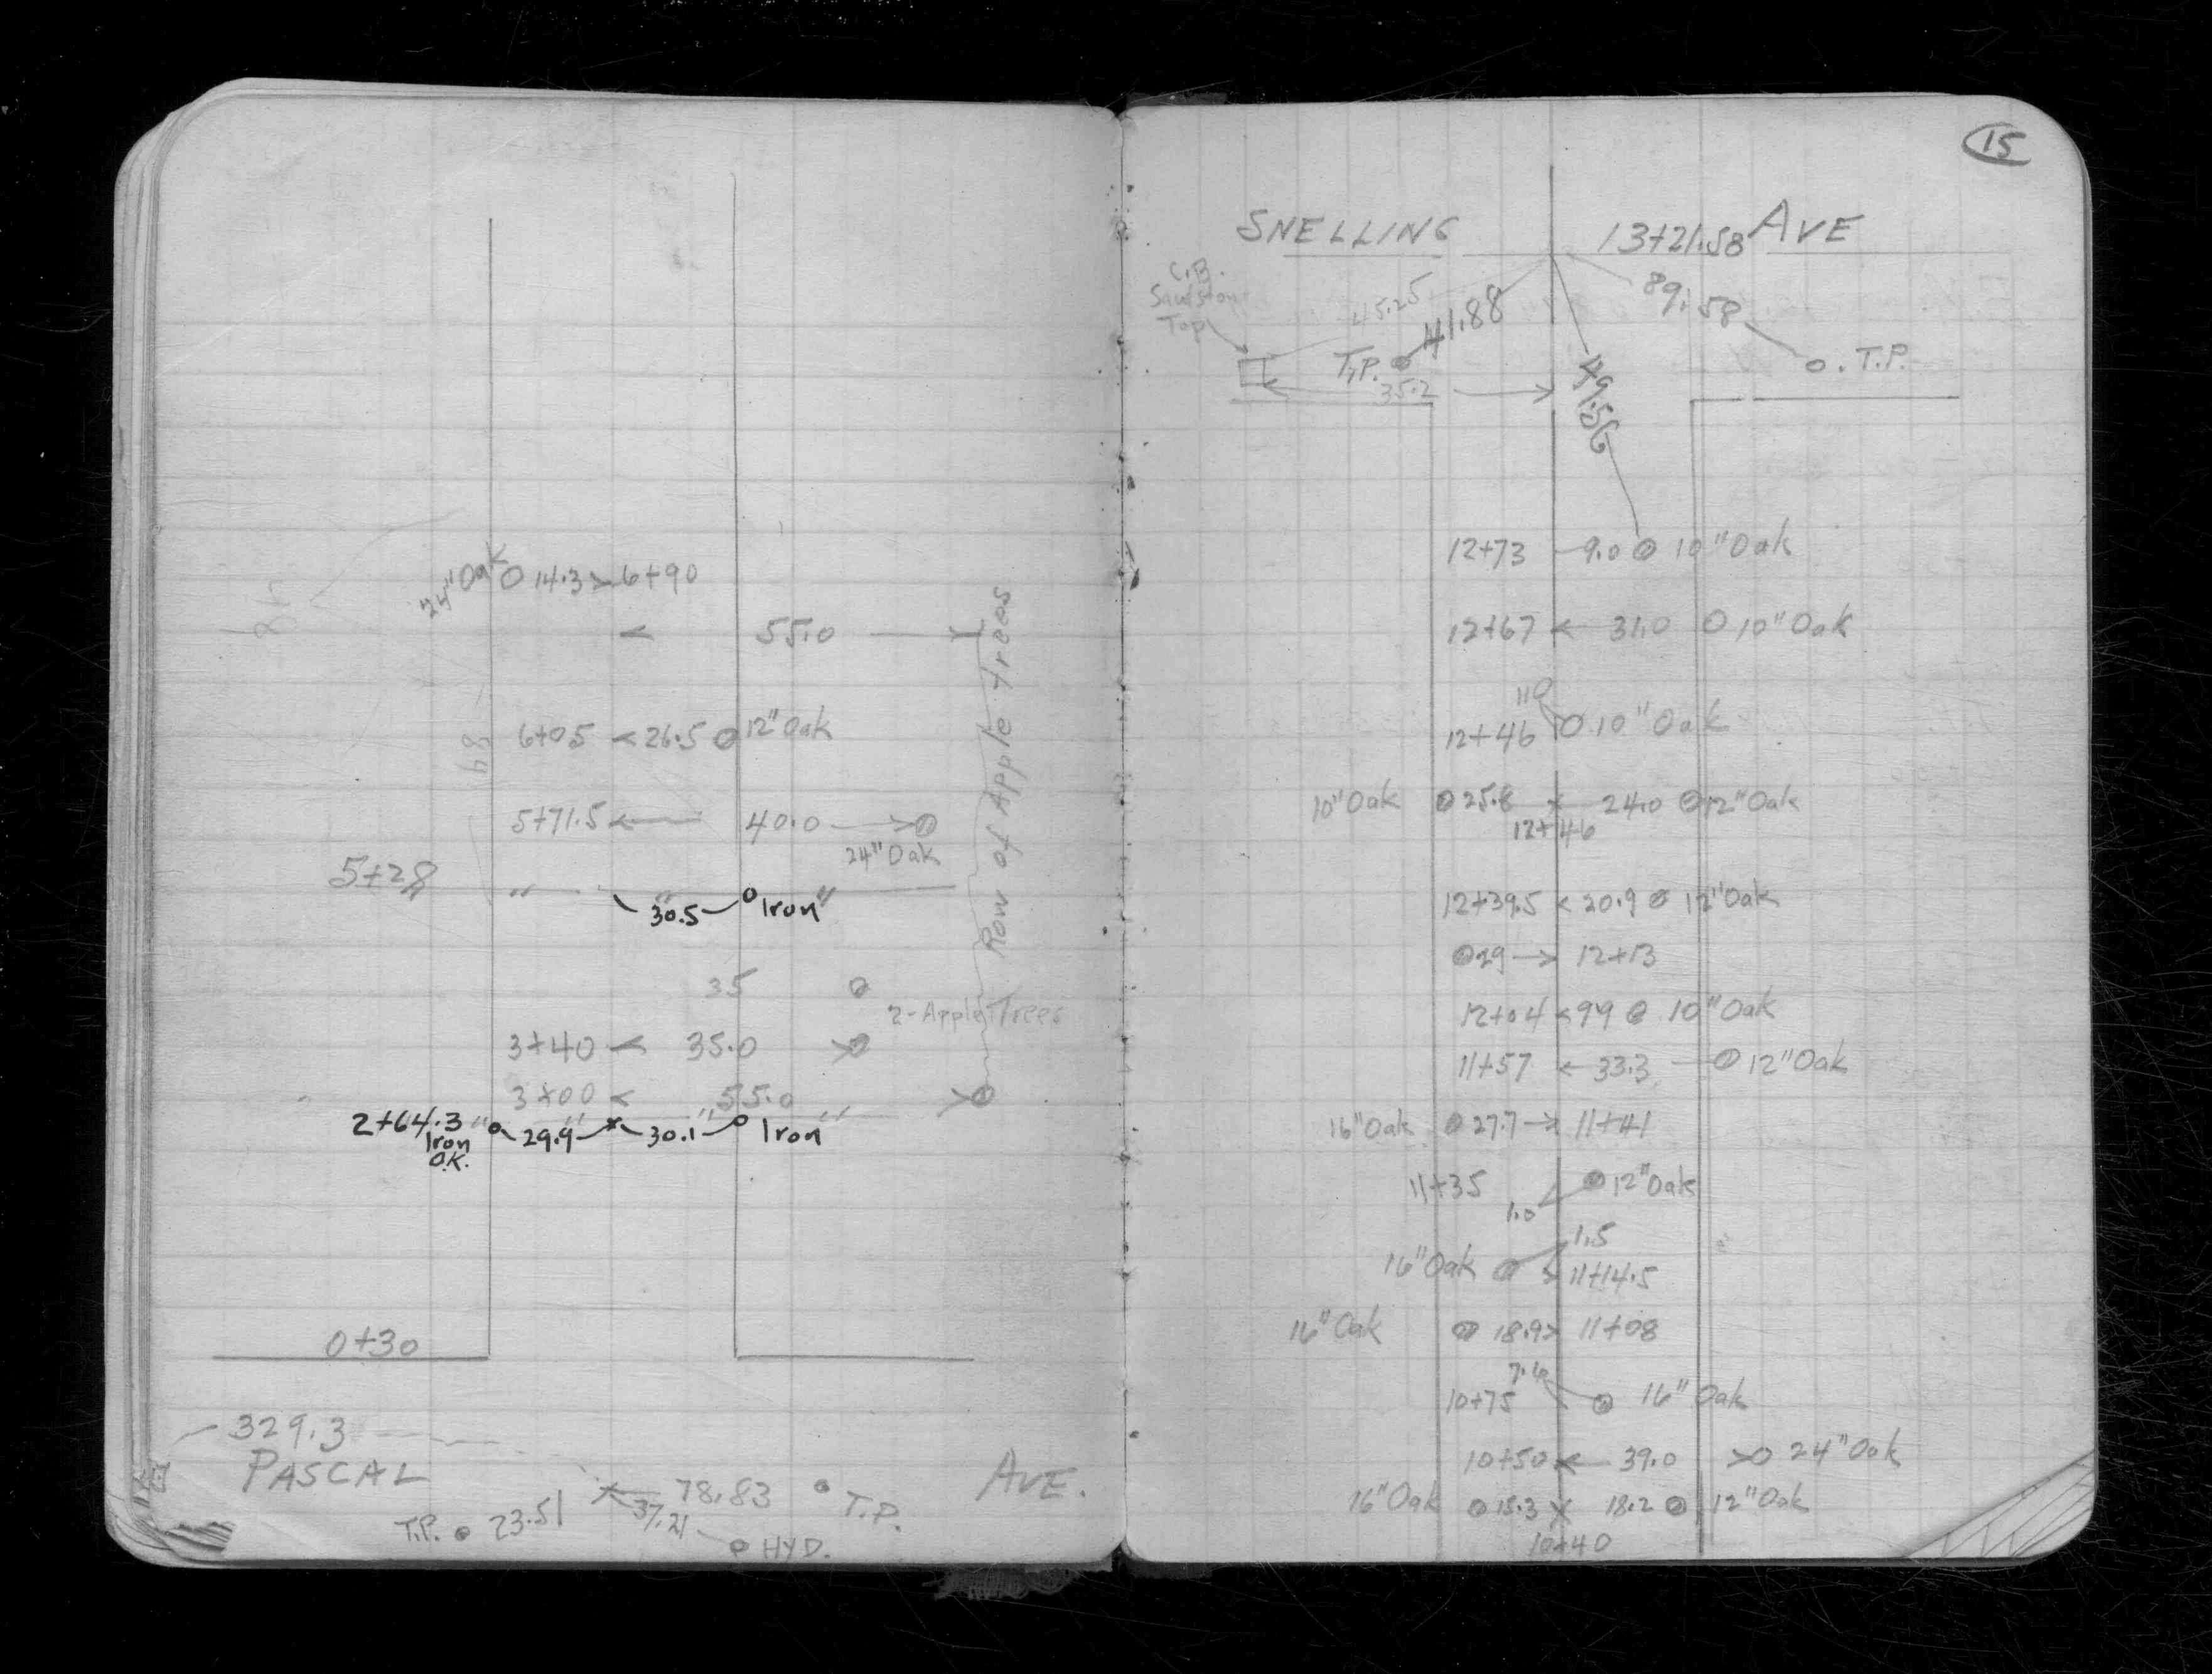 24" Oak 14.3 > 6+90
< 55.0
Row of Apple Trees
84
6+05 < 26.5 12" Oak
5+71.5 < 40.0
24" Oak
5+28 " " "
30.5 Iron
35
2-Apple Trees
3+40 < 35.0
3+00 < 55.0
2+64.3 " " " "
Iron 29.9 30.1 Iron
O.K.
0+30
329.3
PASCAL AVE.
78.83 T.P.
T.P. 23.51 37.21
HYD.
15
SNELLING 13+21.58 AVE
C.B.
Top
45.25 41.88 89.58
T.P. T.P.
35.2
49.56
12+73 9.0 10" Oak
12+67 < 31.0 10" Oak
12+46 10" Oak
10" Oak 25.8 x 24.0 12" Oak
12+46
12+39.5 < 20.9 12" Oak
29 > 12+13
12+04 < 9.9 10" Oak
11+57 < 33.3 12" Oak
16" Oak 27.7 > 11+41
11+35 12" Oak
1.0
1.5
16" Oak 11+14.5
16" Oak 18.9 > 11+08
10+75 16" Oak
10+50 < 39.0 > 24" Oak
16" Oak 15.3 x 18.2 12" Oak
10+40